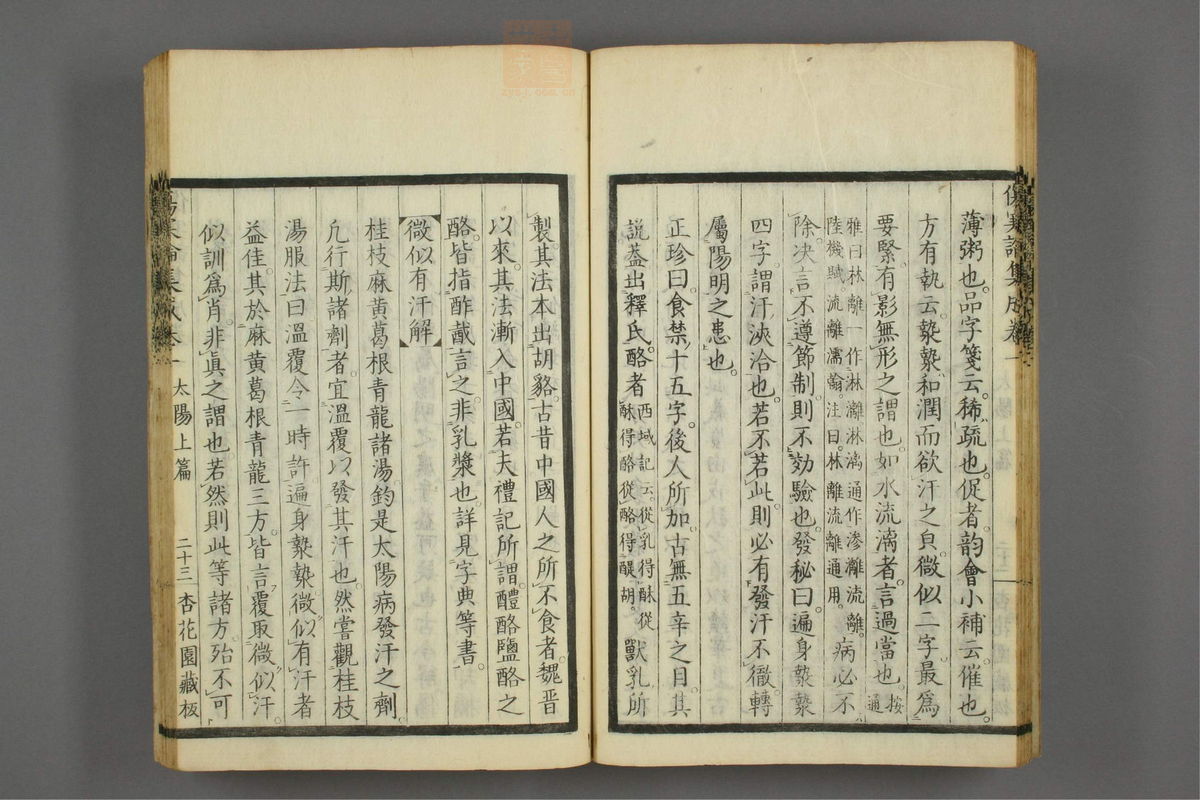 傷寒論集成卷一
薄粥也。品字箋云。稀。疏也。促者。韵會小補云。催也。
方有執云。漐漐。和潤而欲汗之皃。微似二字。最爲
要緊。有影無形之謂也。如水流漓者。言過當也。按通
雅曰。林離一作淋灕淋漓。通作滲灕流離。病必不
陸機賦。流離濡翰。注曰。林離流離通用。
除。決言不遵節制則不効驗也。發秘曰。遍身漐漐
四字。謂汗浹洽也。若不若此。則必有發汗不徹轉
屬陽明之患也。
正珍曰。食禁十五字。後人所加。古無五辛之目。其
說蓋出釋氏。酪者西域記云。從乳得酥。從酥得酪。從酪得醍胡。獸乳所
製。其法本出胡貉。古昔中國人之所不食者。魏晉
以來。其法漸入中國。若夫禮記所謂醴酪鹽酪之
酪。皆指酢酨言之。非乳漿也。詳見字典等書。
微似有汗解
桂枝麻黃葛根青龍諸湯。鈞是太陽病發汗之劑。
凢行斯諸劑者。宜溫覆以發其汗也。然嘗觀桂枝
湯服法曰。溫覆令一時許。遍身漐漐微似有汗者
益佳。其於麻黃葛根青龍三方。皆言覆取微似汗。
似訓爲肖。非眞之謂也。若然則此等諸方。殆不可
傷寒論集成卷一 太陽上篇 二十三 杏花園藏板